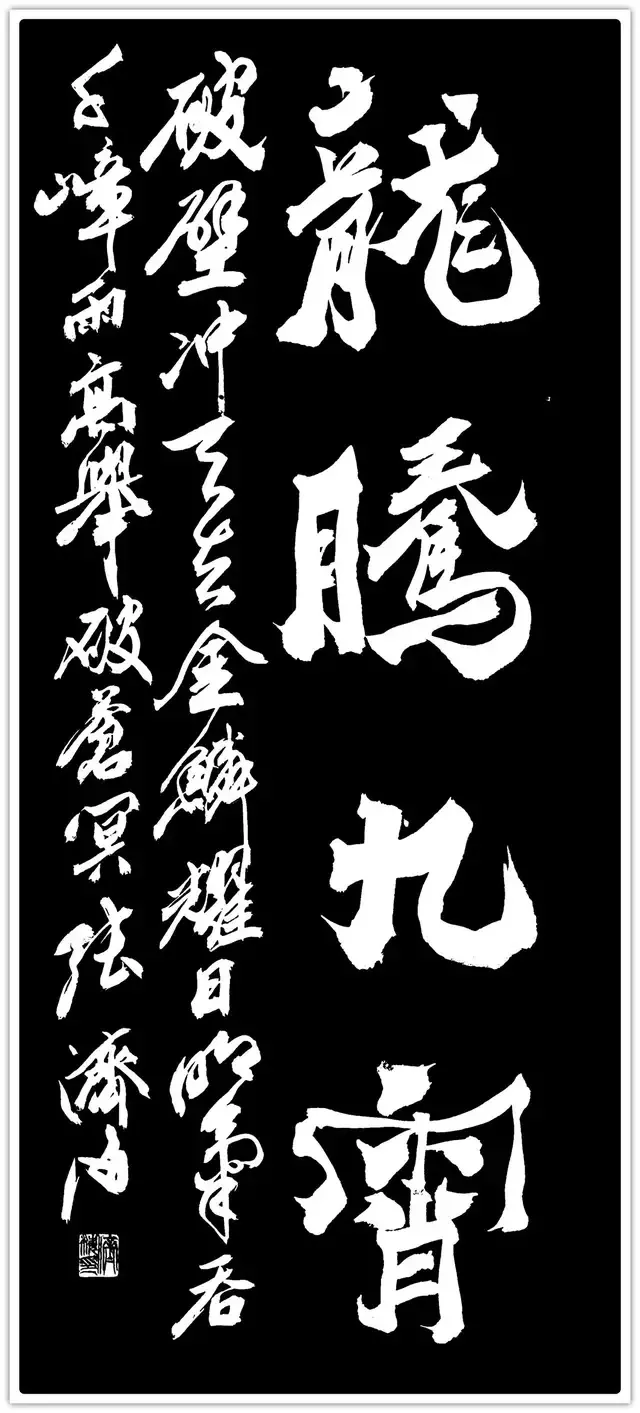 龍騰九霄
破壁冲天去金鱗耀日明氣吞
千嶂雨高舉破蒼冥张濟